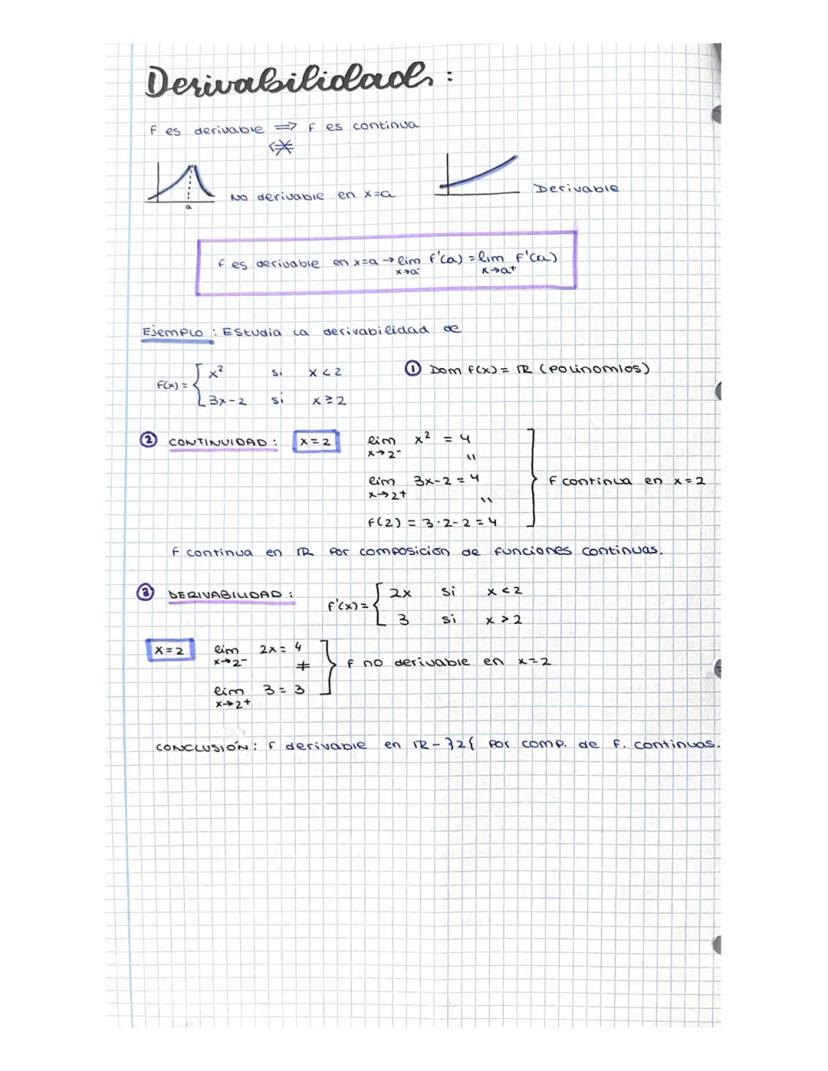 Derivabilidad:
f es derivable => f es continua
<≠
a
No derivable en x=a
Derivable
f es derivable en x=a → lim f'(a) = lim f'(a)
x→a⁻ x→a⁺
Ejemplo: Estudia la derivabilidad de
f(x) = { x² si x < 2
3x-2 si x ≥ 2
① Dom f(x) = ℝ (Polinomios)
② CONTINUIDAD: x=2
lim x² = 4
x→2⁻ "
lim 3x-2 = 4
x→2⁺ "
f(2) = 3·2-2 = 4
} f continua en x=2
f continua en ℝ por composición de funciones continuas.
③ DERIVABILIDAD:
f'(x) = { 2x si x < 2
3 si x > 2
x=2
lim 2x = 4
x→2⁻ ≠
lim 3 = 3
x→2⁺
} f no derivable en x=2
CONCLUSIÓN: f derivable en ℝ-}2{ por comp. de f. continuas.